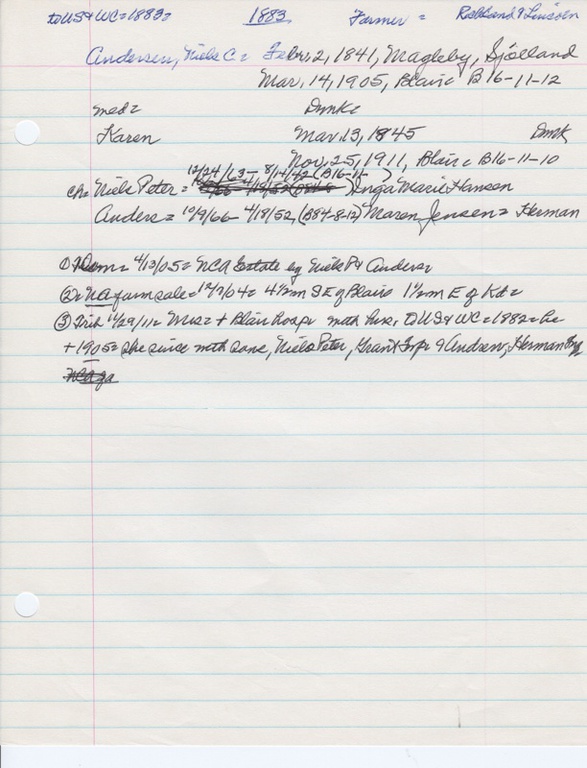 to US & WC = 1883 = 1883 Farmer = Richland & Lincoln
Andersen, Niels C. = Febr. 2, 1841, Magleby, Sjölland
Mar. 14, 1905, Blair = B16-11-12
med = Dmk =
Karen Mar. 13, 1845 Dmk
Nov. 25, 1911, Blair = B16-11-10
12/24/63 - 8/14/42 (B16-11- )
ch = Niels Peter = Inga Marie Hansen
Anders = 10/9/66 - 4/18/52, (B84-8-12) Maren Jensen = Herman
① 4/13/05 = NCA Estate by Niels P & Anders =
② = NA farm sale = 12/7/04 = 4½ m SE of Blair 1½ m E of Kd =
③ Trib 11/29/11 = Mrs = + Blair hosp = to US & WC = 1882 = he
+ 1905 = she since with sons, Niels Peter, Grant & Andrew, Herman